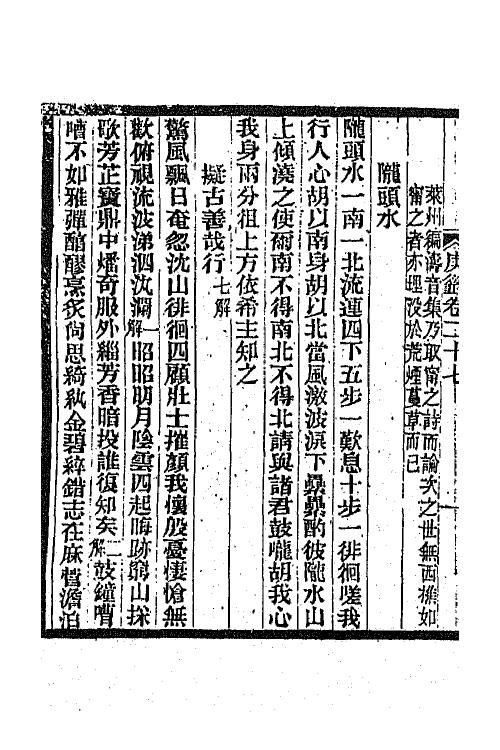 萊州編濤音集乃取甯之詩而論次之世無西樵如
甯之者亦埋沒於荒煙蔓草而已
隴頭水
隴頭水一南一北流連四下五步一歎息十步一徘徊嗟我
行人心胡以南身胡以北當風激波淚下纍纍酌彼隴水山
上傾澆之使爾南不得南北不得北請與諸君鼓嚨胡我心
我身兩分徂上方依希主知之
擬古善哉行七解
驚風飄日奄忽沈山徘徊四顧壯士摧顏我懷殷憂悽愴無
歡俯視流波涕泗汍瀾一解昭昭明月陰雲四起晦跡窮山採
歌芳芷寶鼎中燔奇服外緇芳香暗投誰復知矣二解鼓鐘嘈
嘈不如雅彈酣醪烹炙尙思綺紈金碧綷錯志在麻菅澹泊